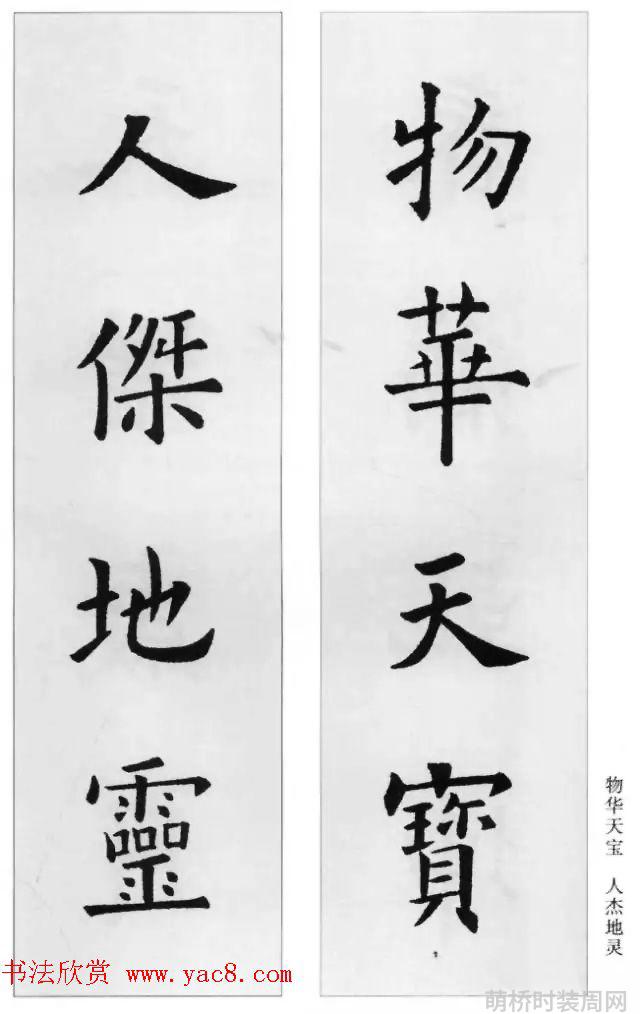 物華天寶
人傑地靈
物华天宝　人杰地灵
书法欣赏 www.yac8.com
萌桥时装周网